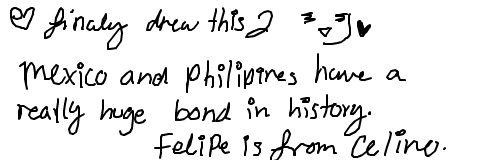 ♡ finaly drew this 2
mexico and philipines have a
really huge bond in history.
Felipe is from celino.